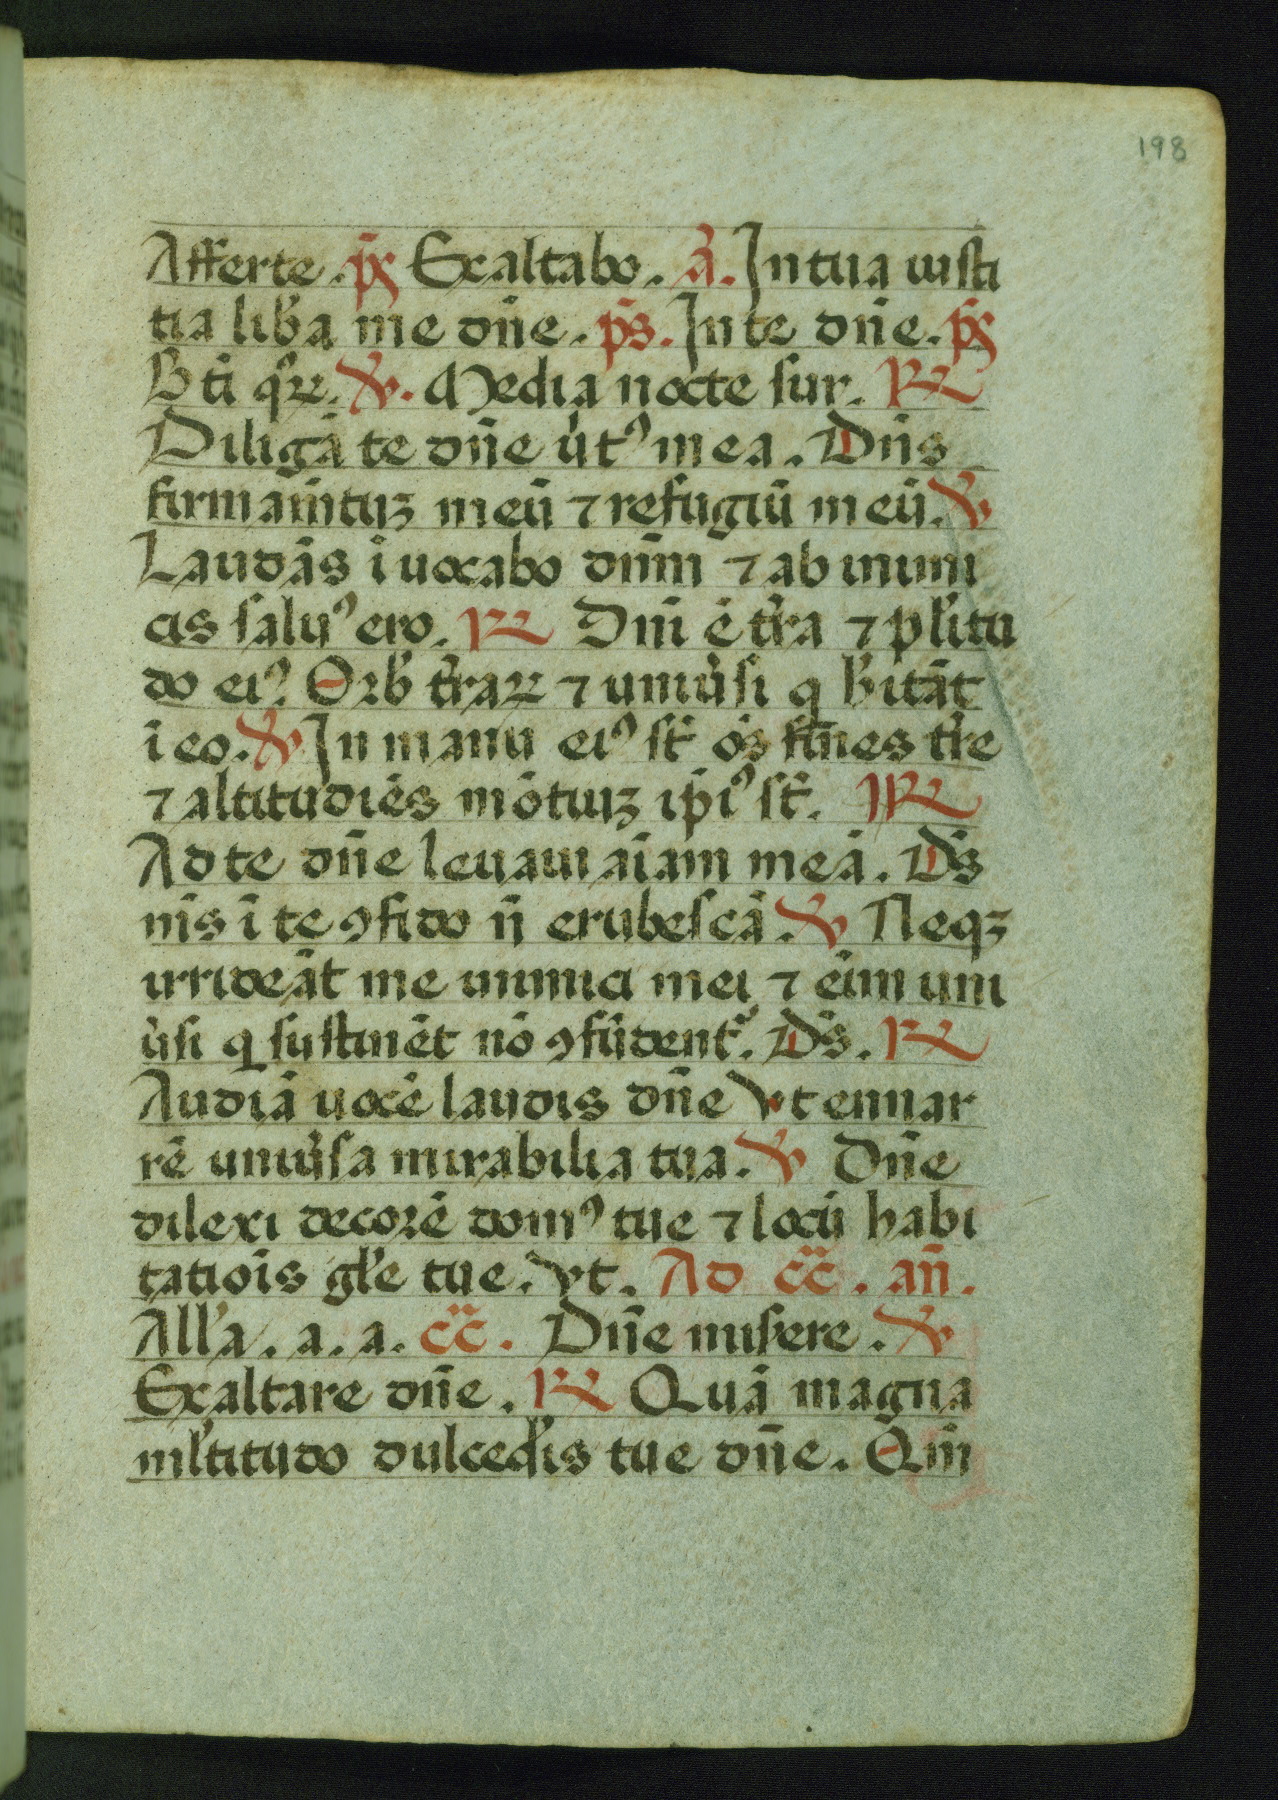 198
Afferte. p̄s Exaltabo. ā. In tua iusti
tia lib̄a me dn̄e. p̄s. In te dn̄e. p̄s
Bti q̄ꝝ. ℣. Media nocte sur. ℟
Diligā te dn̄e u̓tꝰ mea. Dn̄s
firmam̄tuꝫ meū ⁊ refugiū meū. ℣
Laudās īuocabo dn̄m ⁊ ab inimi
cis saluꝰ ero. ℟ Dn̄i ē t̄ra ⁊ pl̄itu
do eiꝰ Orb̓ t̄raꝝ ⁊ uniu̓si q h̄itāt
ī eo. ℣ In manu eiꝰ st̄ oēs fines t̄re
⁊ altitudiēs mōtiuꝫ ip̄iꝰ st̄. ℟
Ad te dn̄e leuaui aīam meā. Ds̄
m̄s ī te ꝯfido n̄ erubescā. ℣ Neqꝫ
irrideāt me inimici mei ⁊ eīm uni
u̓si q sustinēt nō ꝯfūdent᷑. Ds̄. ℟
Audiā uocē laudis dn̄e Vt ennar
rē uniu̓sa mirabilia tua. ℣ Dn̄e
dilexi decorē domꝰ tue ⁊ locū habi
tatiōis gl̄e tue. Vt. Ad cc̄. an̄.
All̄a. a. a. cc̄. Dn̄e miserere. ℣
Exaltare dn̄e. ℟ Quā magna
ml̄titudo dulced̄is tue dn̄e. Qm̄